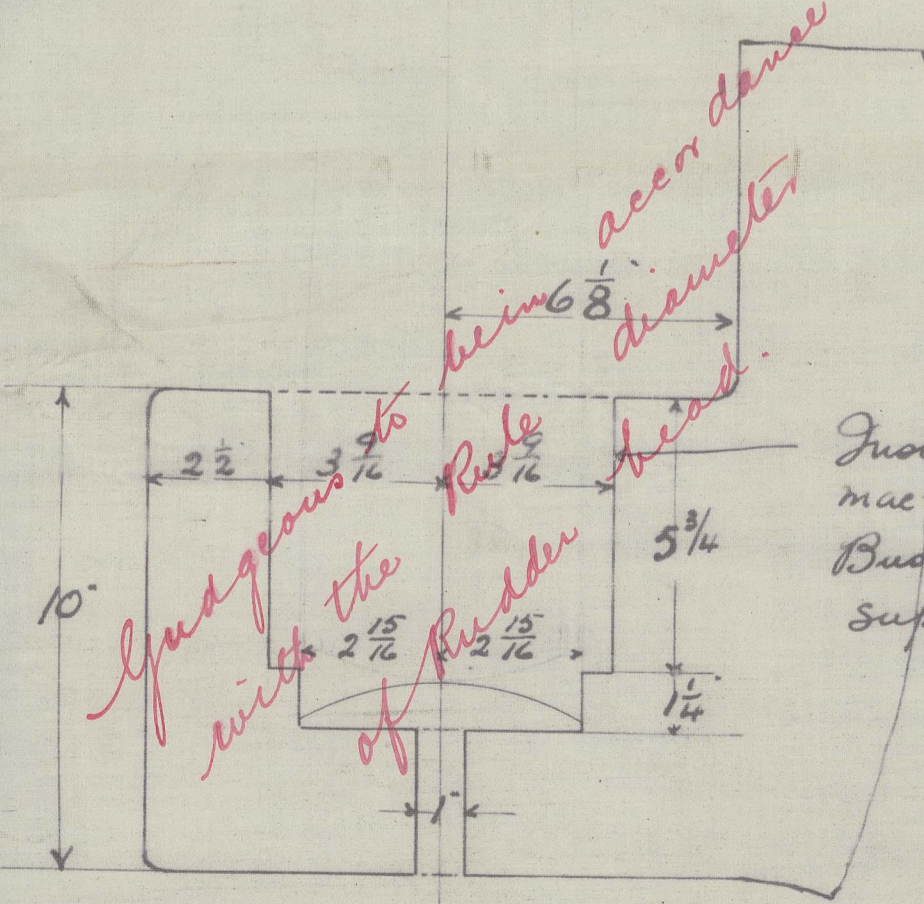 Gudgeons to be in accordance
with the Rule diameter
of Rudder head.
6 1/8"
2 1/2
3 9/16
3 9/16
5 3/4
10"
2 15/16
2 15/16
1 1/4"
1"
mac